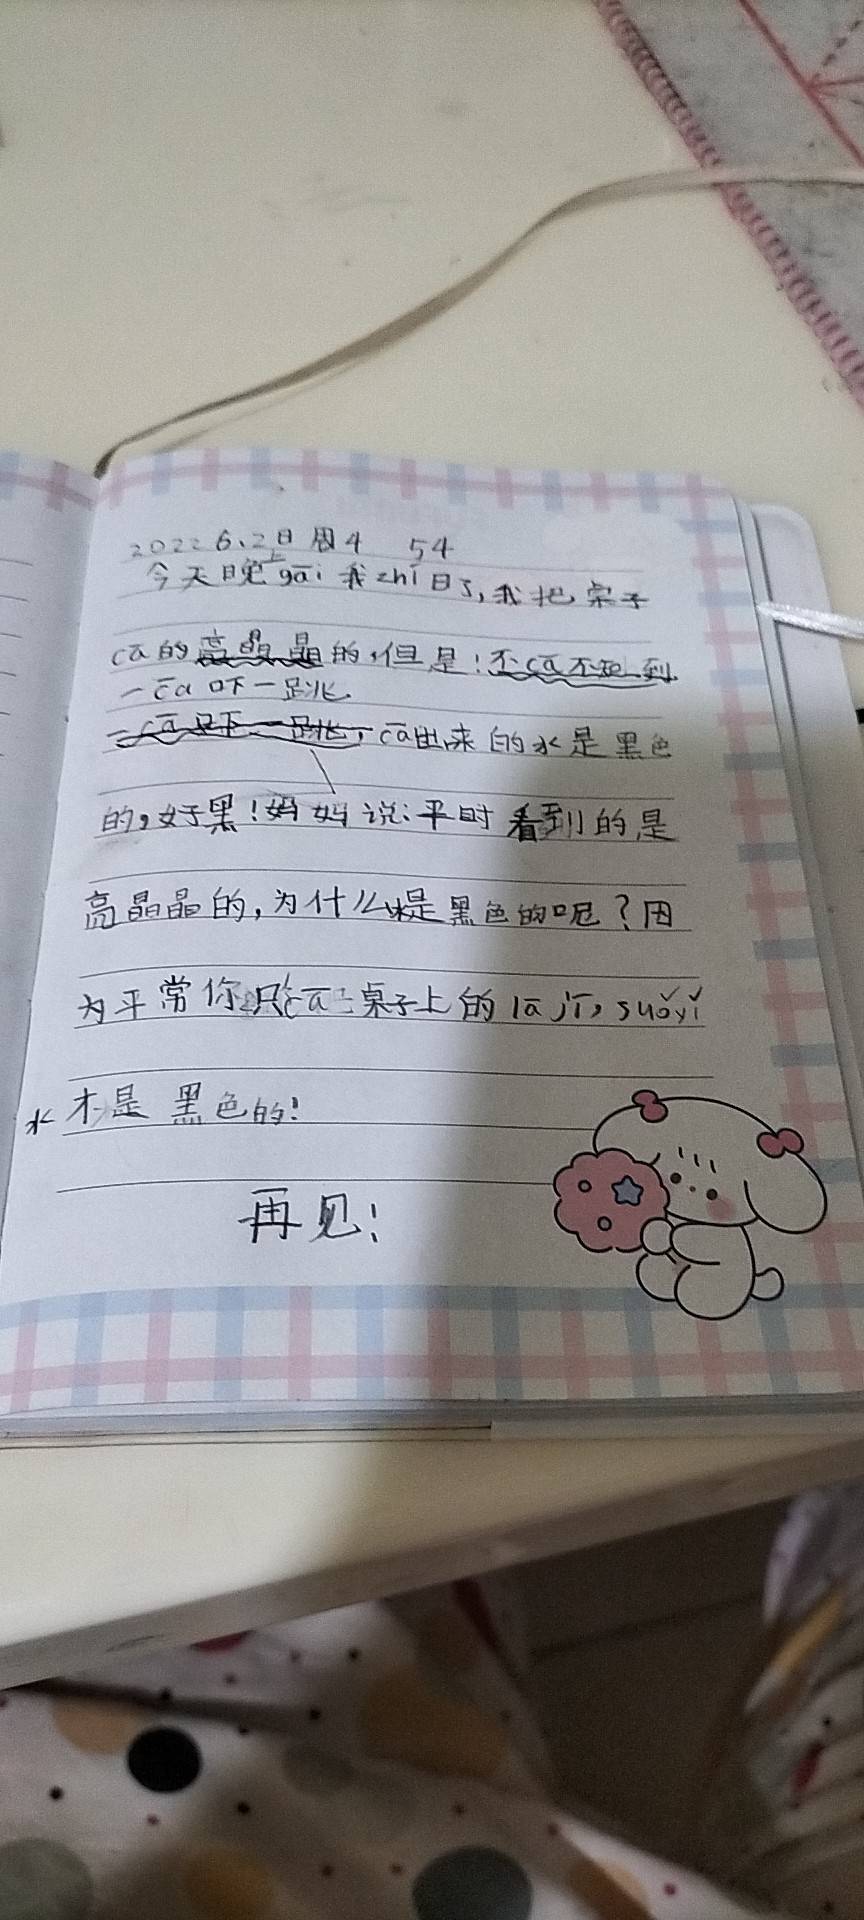 2022 6.2日 周4 54
今天晚上gāi我zhí日了,我把桌子
cā的亮晶晶的,但是!不cā不知到
一cā吓一跳
一cā吓一跳,cā出来的水是黑色
的,好黑!妈妈说:平时看到的是
亮晶晶的,为什么是黑色的呢?因
为平常你只cā桌子上的lā jī,suǒyǐ
水才是黑色的!
再见!